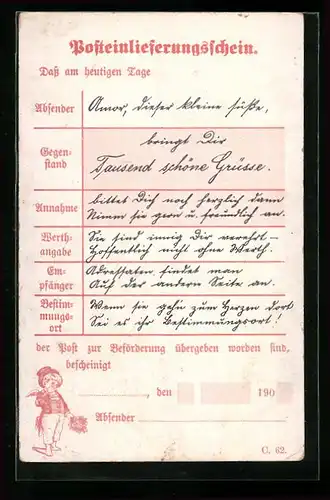 Posteinlieferungsschein.
Daß am heutigen Tage
Absender Amor, dieser kleine süße,
Gegen-
stand
bringt Dir
Tausend schöne Grüsse.
Annahme bittet Dich noch herzlich dann
Nimm sie gern u. freundlich an.
Werth-
angabe
Sie sind innig Dir verehrt –
Hoffentlich nicht ohne Werth.
Em-
pfänger
Adressaten findet man
Auf der andern Seite an.
Bestim-
mungs-
ort
Wenn sie gehn zum Herzen dort
Sei es ihr Bestimmungsort!
der Post zur Beförderung übergeben worden sind,
bescheinigt
, den 190
Absender
C. 62.